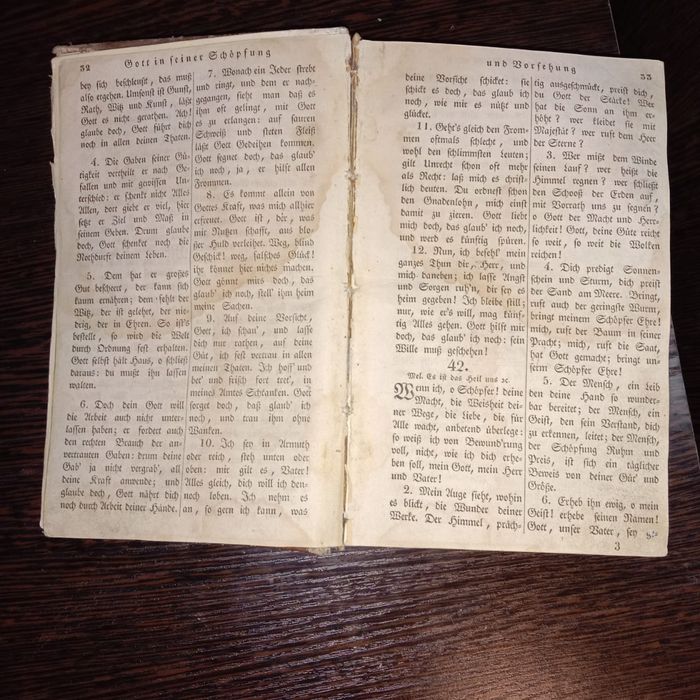 32 Gott in seiner Schöpfung
bey sich beschleußt, das muß
also ergehen. Umsonst ist Gunst,
Rath, Witz und Kunst, läßt
Gott es nicht gerathen. Ach!
glaube doch, Gott führt dich
noch in allen deinen Thaten.
4. Die Gaben seiner Gü-
tigkeit vertheilt er nach Ge-
fallen und mit gewissen Un-
terschied: er schenkt nicht Alles
Allen, dort giebt er viel, hier
setzt er Ziel und Maß in
seinem Geben. Drum glaube
doch, Gott schenket noch die
Nothdurft deinem Leben.
5. Dem hat er großes
Gut bescheert, der kann sich
kaum ernähren; dem fehlt der
Witz, der ist gelehrt, der nie-
drig, der in Ehren. So ist's
bestellt, so wird die Welt
durch Ordnung fest erhalten.
Gott selbst hält Haus, o schließ
daraus: du mußt ihn lassen
walten.
6. Doch dein Gott will
die Arbeit auch nicht unter-
lassen haben; er fordert auch
den rechten Brauch der an-
vertrauten Gaben: drum deine
Gab' ja nicht vergrab', all
deine Kraft anwende; und
glaube doch, Gott nährt dich
noch durch Arbeit deiner Hände.
7. Wonach ein Jeder strebt
und ringt, und dem er nach-
gegangen, sieht man daß es
ihm oft gelingt, mit Gott
es zu erlangen: auf sauren
Schweiß und steten Fleiß
läßt Gott Gedeihen kommen.
Gott segnet doch, das glaub'
ich noch, ja, er hilft allen
Frommen.
8. Es kommt allein von
Gottes Kraft, was mich allhier
erfreuet. Gott ist, der, was
mir Nutzen schafft, aus blo-
ßer Huld verleihet. Weg, blind
Geschick! weg, falsches Glück!
ihr könnet hier nichts machen.
Gott gönnt mirs doch, das
glaub' ich noch, stell' ihm heim
meine Sachen.
9. Auf deine Vorsicht,
Gott, ich schau', und lasse
dich nur rathen, auf deine
Güt', ich fest vertrau in allen
meinen Thaten. Ich hoff' und
bet' und frisch fort tret', in
meines Amtes Schranken. Gott
sorget doch, daß glaub' ich
noch, und trau ihm ohne
Wanken.
10. Ich sey in Armuth
oder reich, steh unten oder
oben: mir gilt es, Vater!
Alles gleich, dich will ich den-
noch loben. Ich nehm es
an, so gern ich kann, was
und Vorsehung 33
deine Vorsicht schicket: sie
schickt es doch, das glaub ich
noch, wie mir es nützt und
glücket.
11. Geht's gleich den From-
men oftmals schlecht, und
wohl den schlimmsten Leuten;
gilt Unrecht schon oft mehr
als Recht: laß mich es christ-
lich deuten. Du ordnest schon
den Gnadenlohn, mich einst
damit zu zieren. Gott liebt
mich doch, das glaub' ich noch,
und werd es künftig spüren.
12. Nun, ich befehl' mein
ganzes Thun dir, Herr, und
mich daneben; ich lasse Angst
und Sorgen ruh'n, dir sey es
heim gegeben! Ich bleibe still;
nur, wie er's will, mag künf-
tig Alles gehen. Gott hilft mir
doch, das glaub ich noch: sein
Wille muß geschehen!
42.
Mel. Es ist das Heil uns ꝛc
Wenn ich, o Schöpfer! deine
Macht, die Weisheit dei-
ner Wege, die Liebe, die für
Alle wacht, anbetend überlege:
so weiß ich von Bewund'rung
voll, nicht, wie ich dich erhe-
ben soll, mein Gott, mein Herr
und Vater!
2. Mein Auge sieht, wohin
es blickt, die Wunder deiner
Werke. Der Himmel, präch-
tig ausgeschmückt, preist dich,
du Gott der Stärke! Wer
hat die Sonn an ihm er-
höht? wer kleidet sie mit
Majestät? wer ruft dem Heer
der Sterne?
3. Wer mißt dem Winde
seinen Lauf? wer heißt die
Himmel regnen? wer schließt
den Schooß der Erden auf,
mit Vorrath uns zu segnen?
o Gott der Macht und Herr-
lichkeit! Gott, deine Güte reicht
so weit, so weit die Wolken
reichen!
4. Dich predigt Sonnen-
schein und Sturm, dich preist
der Sand am Meere. Bringt,
ruft auch der geringste Wurm,
bringt meinem Schöpfer Ehre!
mich, ruft der Baum in seiner
Pracht; mich, ruft die Saat,
hat Gott gemacht; bringt un-
serm Schöpfer Ehre!
5. Der Mensch, ein Leib
den deine Hand so wunder-
bar bereitet; der Mensch, ein
Geist, den sein Verstand, dich
zu erkennen, leitet; der Mensch,
der Schöpfung Ruhm und
Preis, ist sich ein täglicher
Beweis von deiner Güt' und
Größe.
6. Erheb ihn ewig, o mein
Geist! erhebe seinen Namen!
Gott, unser Vater, sey
3